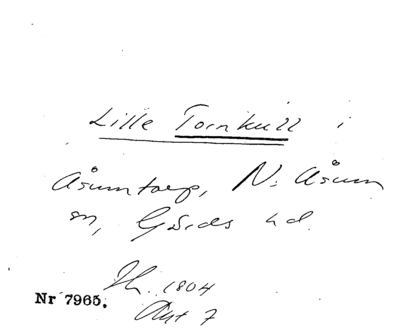 Lille Tornkull i
Åsumtorp, N: Åsum
sn, Gärds hd.
Sk. 1804
Akt 7
Nr 7965.